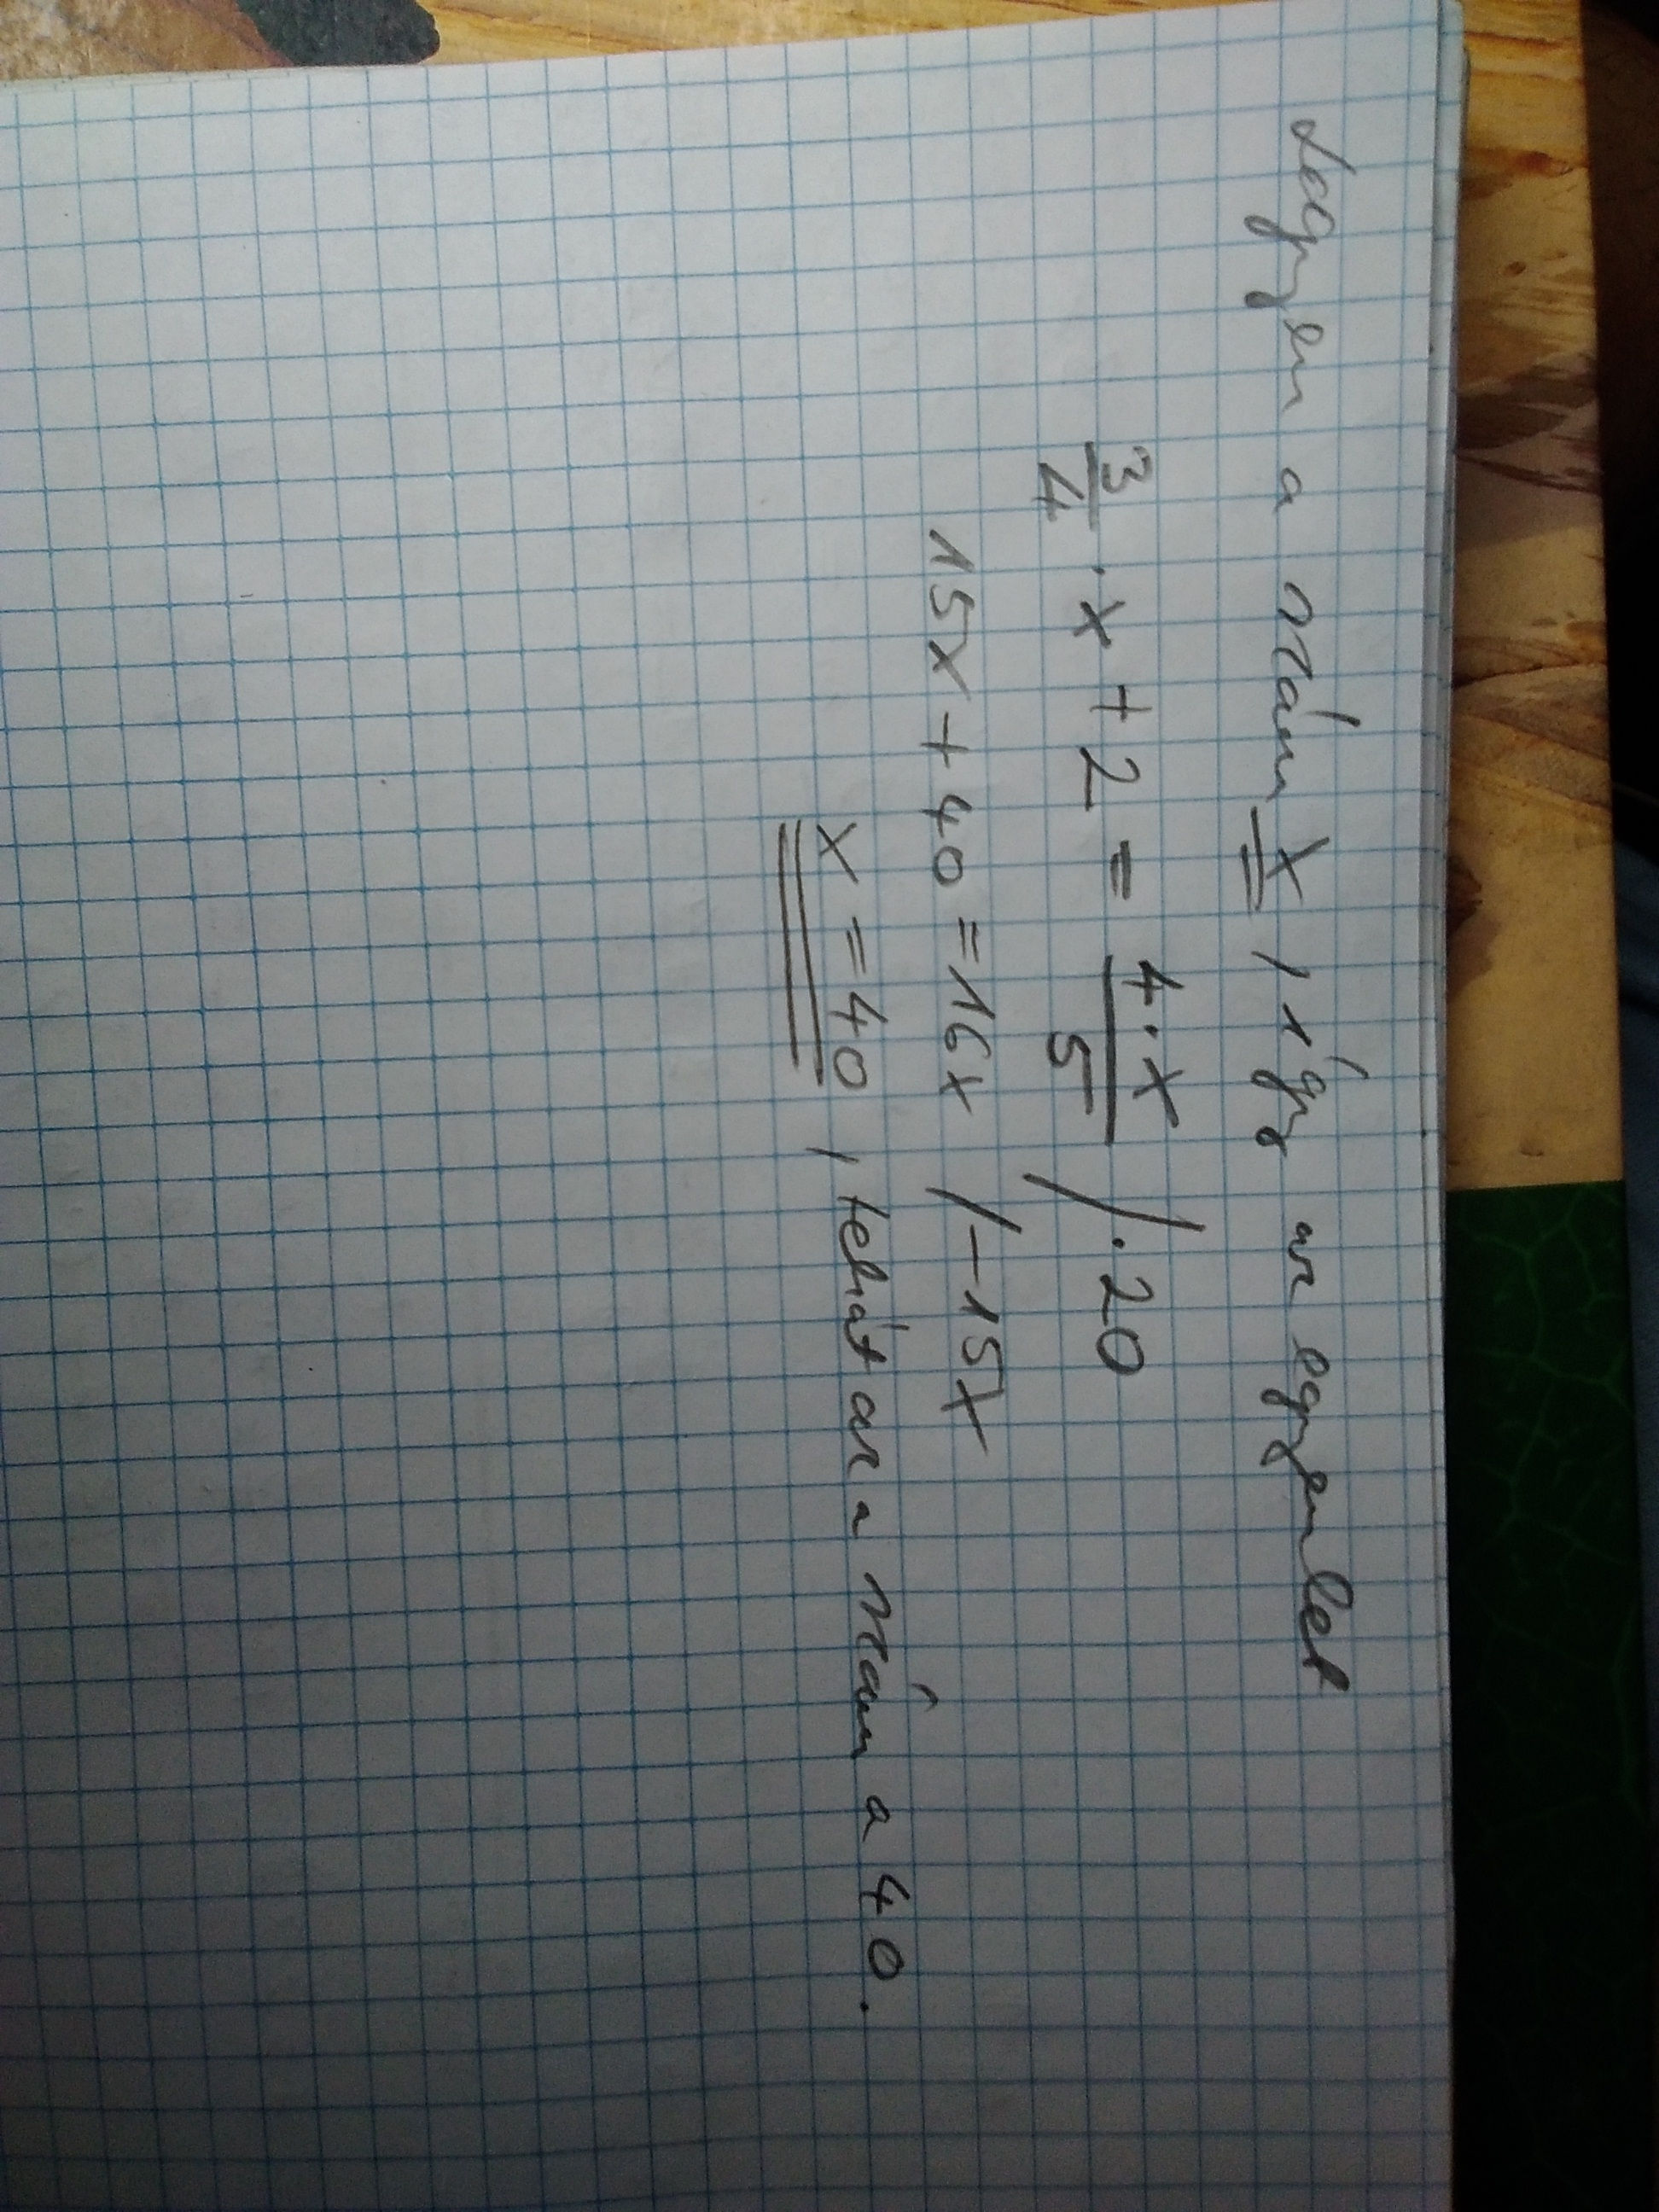 Legyen a szám X, így az egyenlet
3/4 · x + 2 = 4·x/5 /·20
15x + 40 = 16x /-15x
x = 40, tehát az a szám a 40.